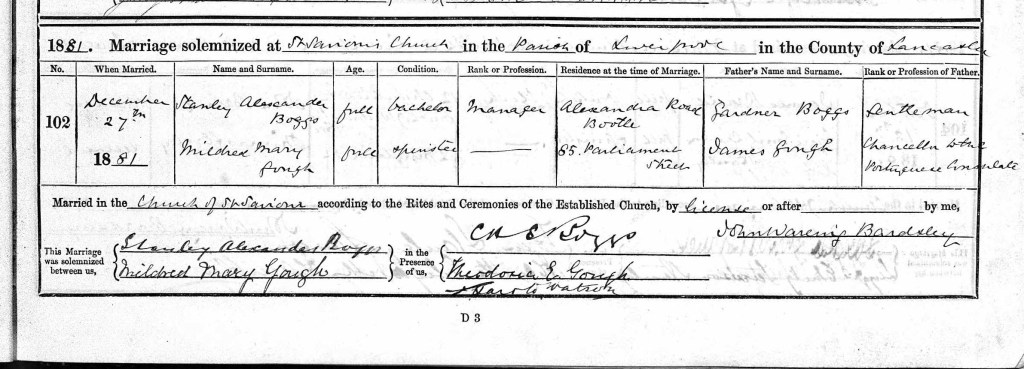 1881. Marriage solemnized at St Saviour's Church in the Parish of Liverpool in the County of Lancaster
No. When Married. Name and Surname. Age. Condition. Rank or Profession. Residence at the time of Marriage. Father's Name and Surname. Rank or Profession of Father.
102 December 27th 1881 Stanley Alexander Boggs full bachelor Manager Alexandra Road Bootle Gardner Boggs Gentleman
Mildred Mary Gough full spinster — 85. Parliament Street James Gough Chancellor to the Portuguese Consulate
Married in the Church of St Saviour according to the Rites and Ceremonies of the Established Church, by License or after by me,
This Marriage was solemnized between us, Stanley Alexander Boggs in the Presence of us, C H E Boggs John Wareing Bardsley
Mildred Mary Gough Theodosia E. Gough
Watson
D 3